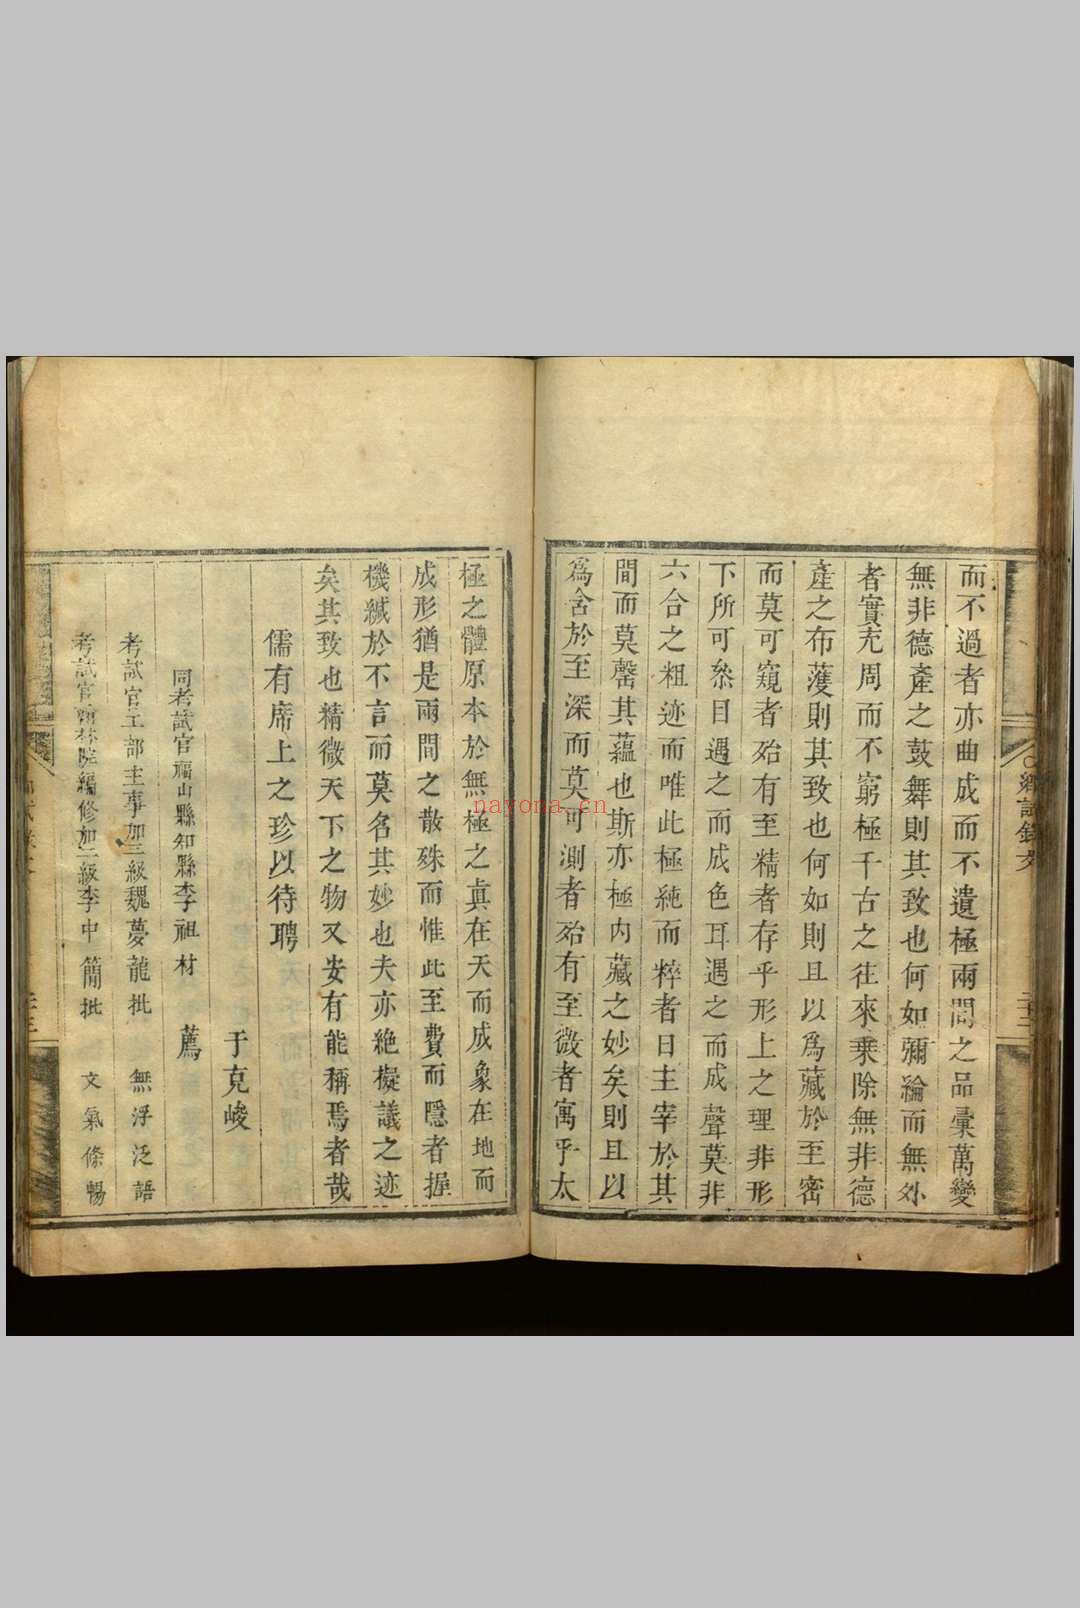 鄉試錄文
二十三
而不過者亦曲成而不遺極兩間之品彙萬變
無非德產之鼓舞則其致也何如彌綸而無外
者實充周而不窮極千古之往來乗除無非德
產之布濩則其致也何如則且以爲藏於至密
而莫可窺者殆有至精者存乎形上之理非形
下所可叅目遇之而成色耳遇之而成聲莫非
六合之粗迹而唯此極純而粹者日主宰於其
間而莫罄其蘊也斯亦極內藏之妙矣則且以
爲含於至深而莫可測者殆有至微者寓乎太
極之體原本於無極之眞在天而成象在地而
成形猶是兩間之散殊而惟此至費而隱者握
機緘於不言而莫名其妙也夫亦絶擬議之迹
矣其致也精微天下之物又安有能稱焉者哉
儒有席上之珍以待聘
于克峻
同考試官福山縣知縣李祖材 薦
考試官工部主事加三級魏夢龍批 無浮泛語
考試官翰林院編修加二級李中簡批 文氣條暢
nayona.cn